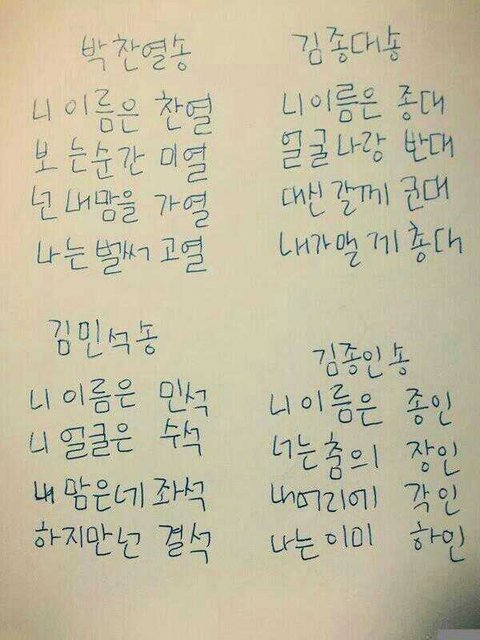 박찬열송
니 이름은 찬열
보 는순간 미열
넌 내맘을 가열
나는 벌써 고열
김종대송
니이름은 종대
얼굴나랑 반대
대신갈께 군대
내가맬께 총대
김민석송
니 이름은 민석
니 얼굴은 수석
내 맘은네 좌석
하지만넌 결석
김종인송
니 이름은 종인
너는춤의 장인
내머리에 각인
나는이미 하인